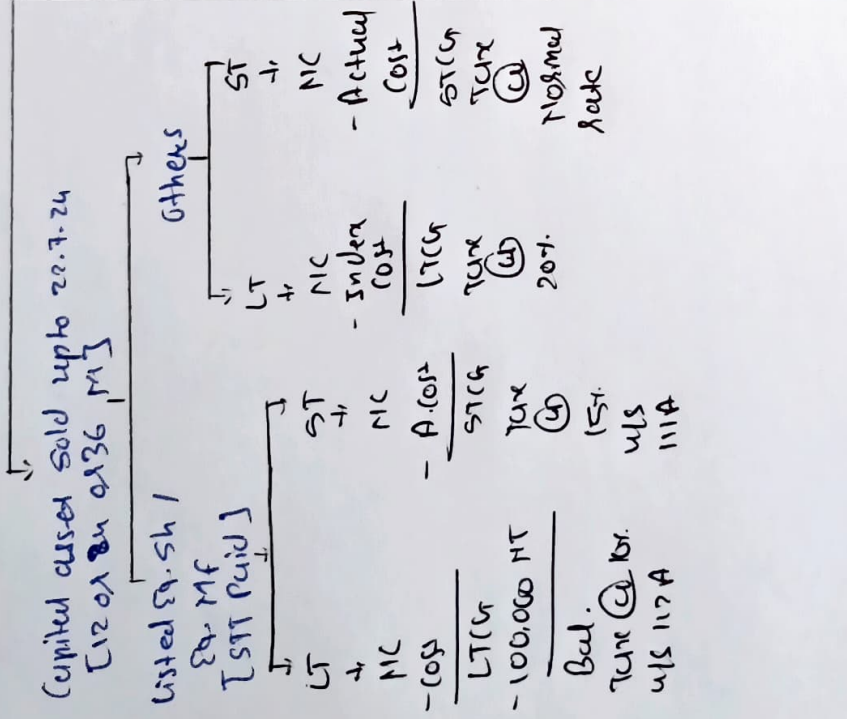 Capital asset sold upto 22.7.24
[12 or 24 or 36 M]
Listed Eq. Sh /
Eq. MF
[STT Paid]
LT
NC
- Cost
LTCG
- 100,000 NT
Bal.
Tax @ 10%
u/s 112A
ST
NC
- A.Cost
STCG
Tax
@
15%
u/s
111A
Others
LT
NC
- Index
Cost
LTCG
Tax
@
20%
ST
NC
- Actual
Cost
STCG
Tax
@
Normal
Rate